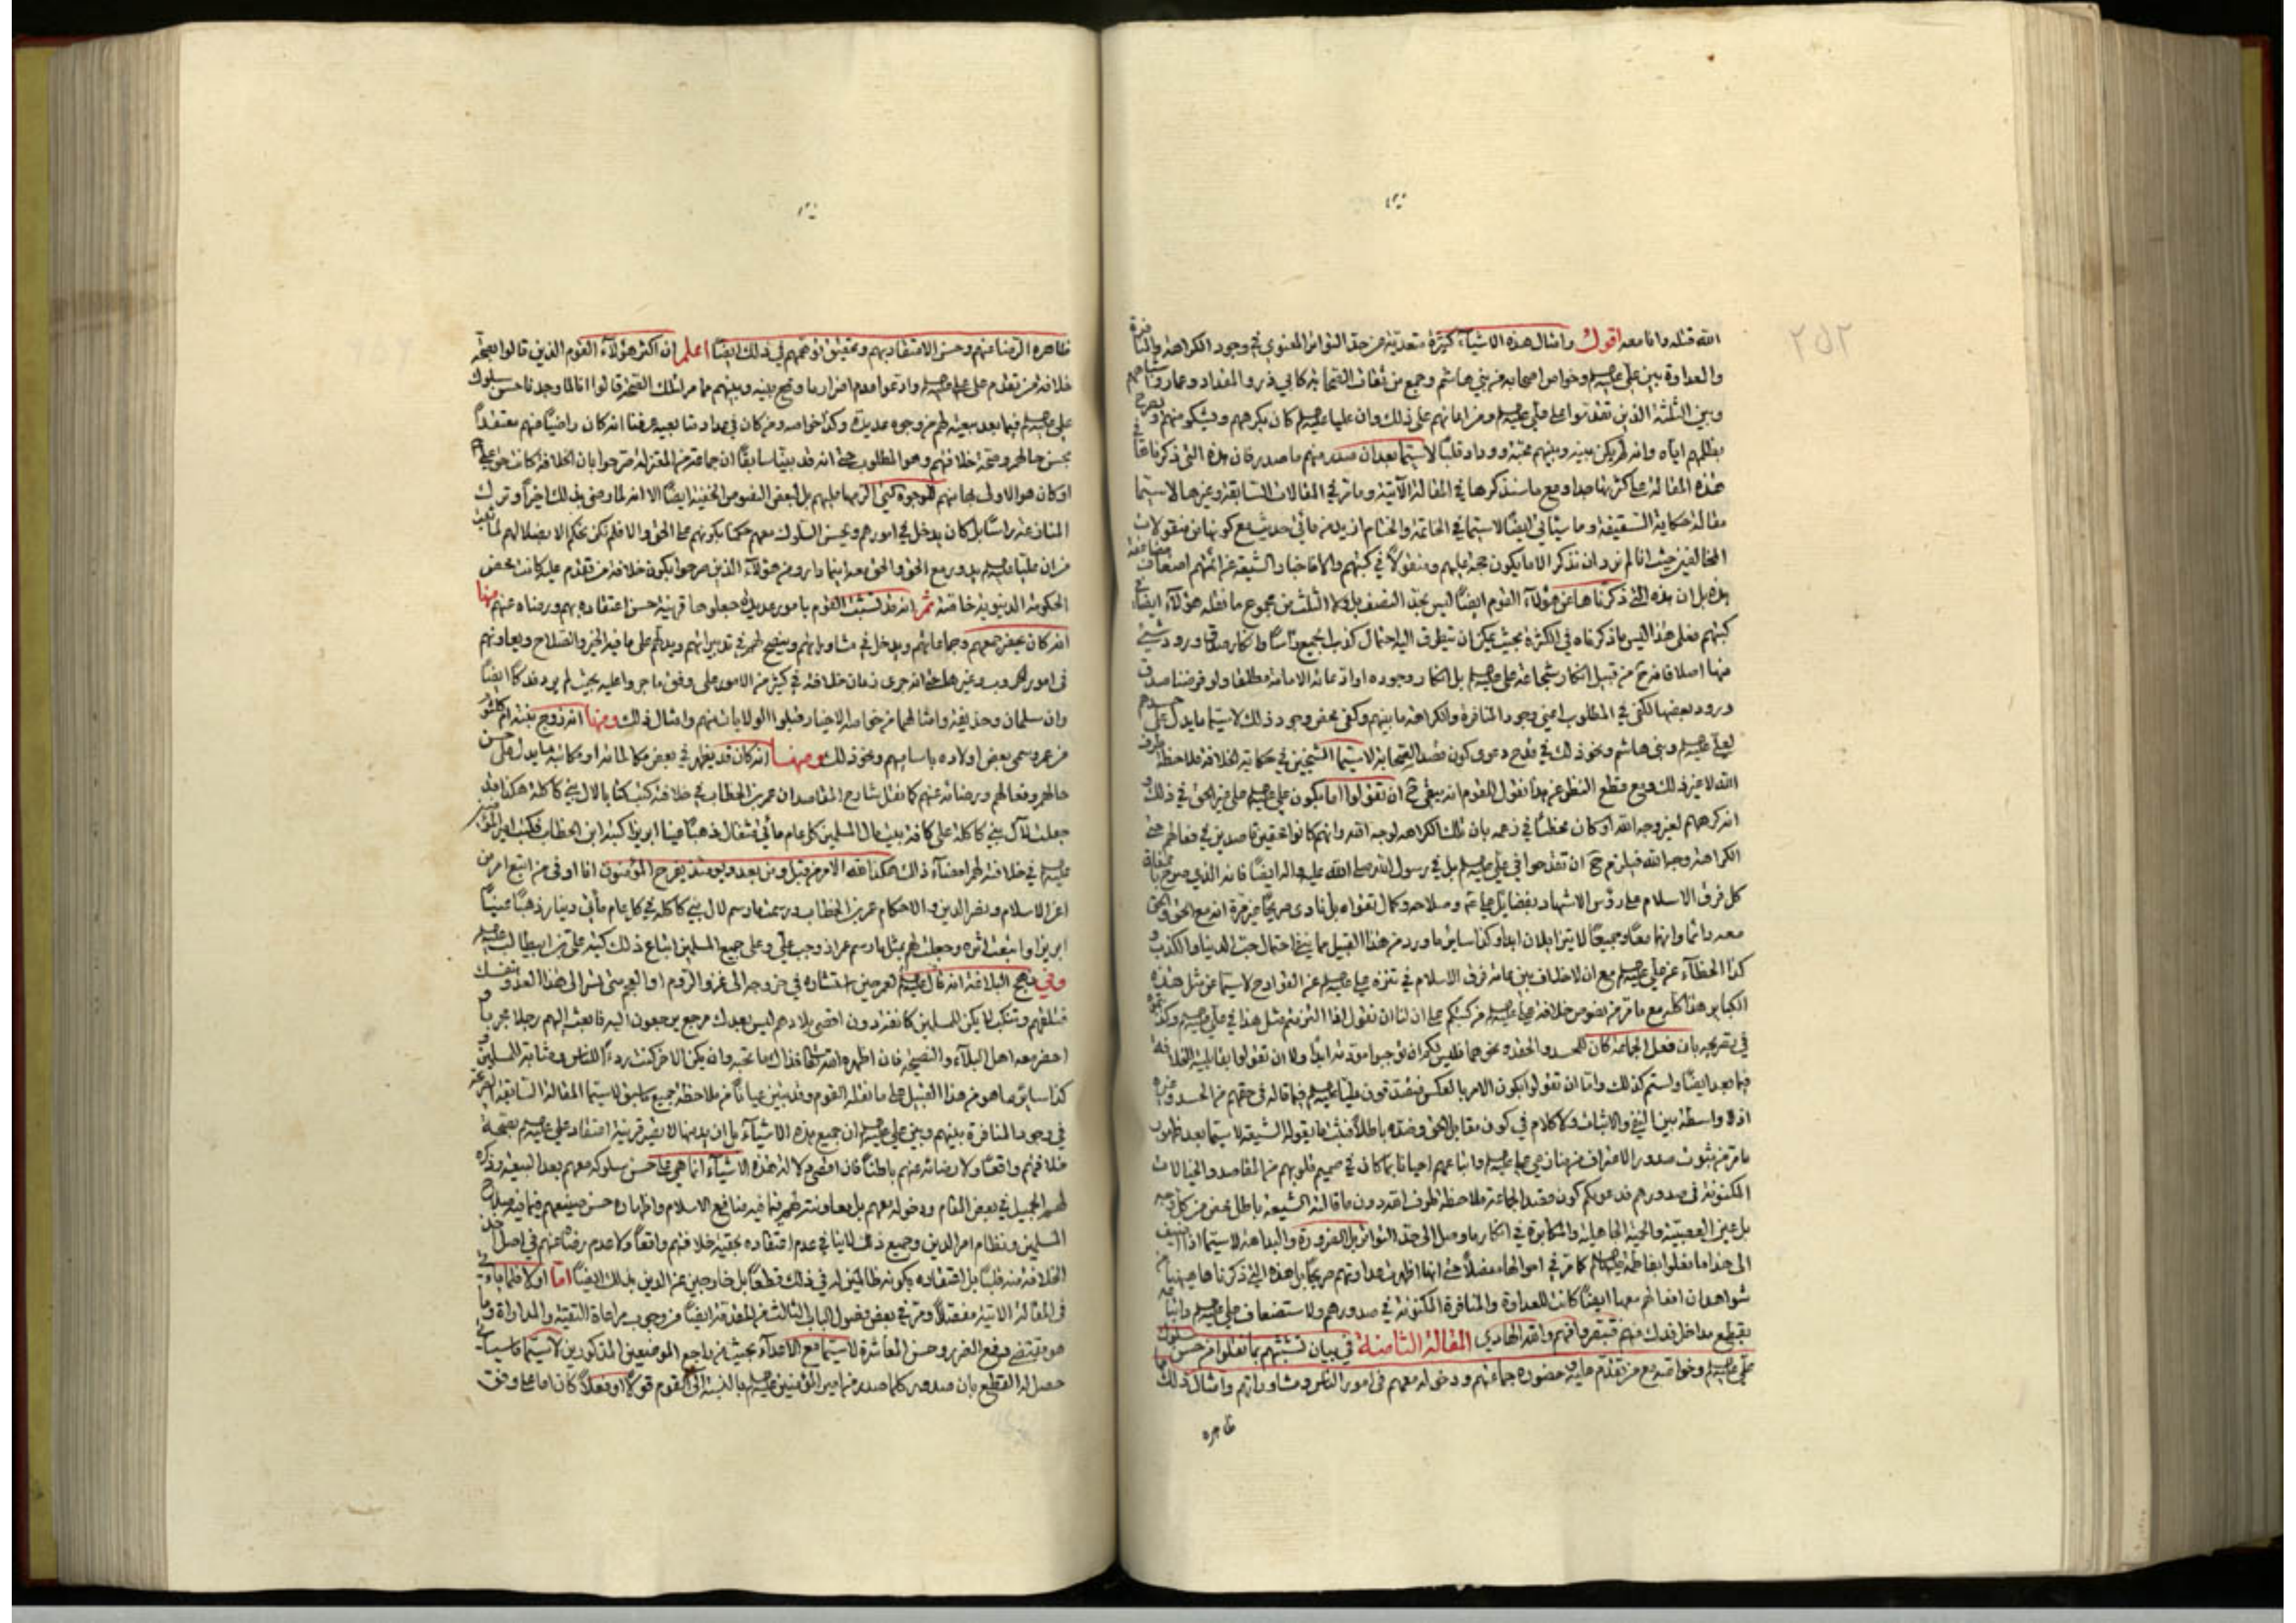 ٢٥٢
الله قتله وانا معه اقول وامثال هذه الاشياء كثيرة متعدية من حد التواتر المعنوي في وجود الكراهة والمنافرة
والعداوة بين علي عليه السلام وخواص اصحابه من بني هاشم وجمع من ثقات الصحابة كابي ذر والمقداد وعمار واشباههم
وبين الثلثة الذين تقدموا على علي عليه السلام ومن اعانهم على ذلك وان عليا عليه السلام كان يكرههم ويشكو منهم و
بظلمهم اياه وانه لم يكن بينه وبينهم محبة ووداد قلبا لاسيما بعد ان صدر منهم ما صدر فان هذه التي ذكرناها في
هذه المقالة على كثرتها مع ما سنذكرها في المقالة الآتية وما مر في المقالات السابقة وغيرها لاسيما
مقالة حكاية السقيفة وما سيأتي ايضا لاسيما في الخاتمة والختام ازيد من مائتي حديث مع كونها من منقولات
المخالفين حيث انا لم نرد ان نذكر الا ما يكون حجة عليهم ومنقولا في كتبهم والا فاخبار الشيعة عن ائمتهم اضعاف
هذه بل ان هذه التي ذكرناها عن هؤلاء القوم ايضا ليس بحد النصف بل ولا الثلث من مجموع ما نقله هؤلاء ايضا في
كتبهم فعلى هذا ليس ما ذكرناه في الكثرة بحيث يمكن ان يتطرق اليه احتمال كذب الجميع راسا وانكار صدق ورود شيء
منها اصلا فانه ح من قبيل انكار شجاعة علي عليه السلام بل انكار وجوده او ادعائه الامامة مطلقا ولو فرضنا صدق
ورود بعضها لكفى في المطلوب اعني وجود المنافرة والكراهة ما بينهم وكفى بمحض وجود ذلك لاسيما ما يدل على
لعلي عليه السلام وبني هاشم ونحو ذلك في قدح دعوى كون قصد الصحابة لاسيما الشيخين في حكاية الخلافة ملاحظة
الله لا غير ذلك ومع قطع النظر عن هذا نقول للقوم انه يبقى ح ان تقولوا اما بكون علي عليه السلام على غير الحق في ذلك
انه كرههم لغير وجه الله او كان مخطئا في زعمه بان تلك الكراهة لوجه الله وانهم كانوا محقين قاصدين في فعالهم
الكراهة وجه الله فيلزم ح ان تقدحوا في علي عليه السلام بل في رسول الله صلى الله عليه واله ايضا فانه الذي صرح
كل فرق الاسلام على رؤس الاشهاد بفضايل علي وصلاحه وكمال تقواه بل نادى صريحا غير مرة انه مع الحق والحق
معه دائما وانهما معا وجميعا لا يتزايلان ابدا وكذا ساير ما ورد من هذا القبيل مما ينفي احتمال حب الدنيا والكذب و
كذا الخطاء عن علي عليه السلام مع ان لا خلاف بين عامة فرق الاسلام في تنزه علي عليه السلام عن القوادح لاسيما عن مثل هذه
الكباير هذا كله مع ما مر من نصوص خلافة علي عليه السلام من كتبكم على ان لنا ان نقول اذا التزمتم مثل هذا في علي عليه السلام وكذا
في تصريحه بان فعل الجماعة كان للحسد والحقد ونحوهما فليس لكم ان توجبوا مودته ابدا ولا ان تقولوا بقابلية الخلافة
فيما بعد ايضا ولستم كذلك واما ان تقولوا بكون الامر بالعكس فتصدقون عليا عليه السلام فيما قاله في حقهم من الحسد وغيره
اذ لا واسطة بين النفي والاثبات ولا كلام في كون مقابل الحق وضده باطلا فثبت ما يقوله الشيعة لاسيما بعد ظهور
ما مر من ثبوت صدور الاعتراف منهما على علي عليه السلام واتباعهم احيانا بما كان في صميم قلوبهم من المقاصد والخيالات
المكنونة في صدورهم فدعويكم كون مقصد الجماعة ملاحظة خوف الله دون ما قالته الشيعة باطل محض من كل وجه
بل عين العصبية والحمية الجاهلية والمكابرة في انكار ما وصل الى حد التواتر بل الضرورة والبداهة لاسيما اذا اضيف
الى هذا ما فعلوا بفاطمة عليها السلام كما مر في احوالها مفصلا حتى انها اظهرت عداوتهم صريحا بل هذه التي ذكرناها هيهنا من
شواهد ان افعالهم معها ايضا كانت للعداوة والمنافرة المكنونة في صدورهم ولاستضعاف علي عليه السلام واتباعه
بقطع مداخل فدك منهم فتبصر وافهم والله الهادي المقالة الثامنة في بيان تشبثهم بما نقلوا من حسن سلوك
علي عليه السلام وخواصه مع من تقدم عليه وحضوره جماعتهم ودخوله معهم في امور الناس ومشاوراتهم وامثال ذلك
ظاهره
ظاهره الرضا عنهم وحسن الاعتقاد بهم وتحقيق توهمهم في ذلك ايضا اعلم ان اكثر هؤلاء القوم الذين قالوا بصحة
خلافة من تقدم على علي عليه السلام وادعوا عدم اضرار ما وقع بينه وبينهم مما مر لتلك الصحة قالوا انا لما وجدنا حسن سلوك
علي عليه السلام فيما بعد بيعته لهم من وجوه عديدة وكذا خواصه ومن كان في صدد متابعيه عرفنا انه كان راضيا عنهم معتقدا
بحسن حالهم وصحة خلافتهم وهو المطلوب حتى انه قد بينا سابقا ان جماعة من المعتزلة صرحوا بان الخلافة كانت حق علي
او كان هو الاولى بها منهم لوجوه كثيرة بل لبعض النصوص الخفية ايضا الا انه لما رضي بذلك اخيرا وترك
المنازعة راسا بل كان يدخل في امورهم ويحسن السلوك معهم حكمنا بكونهم على الحق والا فلم نكن نحكم الا بضلالهم لما ثبت
من ان عليا عليه السلام يدور مع الحق والحق معه اينما دار ومن هؤلاء الذين صرحوا بكون خلافة من تقدم عليه كانت محض
الحكومة الدنيوية خاصة ثم انه قد تشبث القوم بامور عديدة جعلوها قرينة حسن اعتقاده بهم ورضاه عنهم منها
انه كان يحضر جمعهم وجماعاتهم ويدخل في مشاوراتهم وينصح لهم في تدبيراتهم ويدلهم على ما فيه الخير والصلاح ويعاونهم
في امور الحروب وغيرها حتى انه جرى زمان خلافته في كثير من الامور على وفق ما جروا عليه بحيث لم يرد فدكا ايضا
وان سلمان وحذيفة وامثالهما من خواصه الاخيار قبلوا الولايات منهم وامثال ذلك ومنها انه زوج بنته ام كلثوم
من عمر وسمى بعض اولاده باساميهم ونحو ذلك ومنها انه كان قد يظهر في بعض مكالماته او مكاتبه ما يدل على حسن
حالهم وفعالهم ورضائه عنهم كما نقل شارح المقاصد ان عمر بن الخطاب في خلافته كتب كتابا لال بني كاكلة هكذا قد
جعلت لآل بني كاكلة على كافة بيت مال المسلمين كل عام مأتي مثقال ذهبا عينا ابريزا كتبه ابن الخطاب فكتب امير المؤمنين
عليه السلام في خلافته لهم امضاء ذلك هكذا لله الامر من قبل ومن بعد ويومئذ يفرح المؤمنون انا اولى من اتبع امر من
اعز الاسلام ونصر الدين والاحكام عمر بن الخطاب ورسمت بما رسم لال بني كاكلة في كل عام مأتي دينار ذهبا عينا
ابريزا واتبعت اثره وجعلت لهم بمثل ما رسم عمر اذ وجب علي وعلى جميع المسلمين اتباع ذلك كتبه علي بن ابيطالب عليه السلام
وفي نهج البلاغة انه قال عليه السلام لعمر حين استشاره في خروجه الى غزو الروم او العجم متى تسر الى هذا العدو بنفسك
فتلقهم وتنكب لا يكن للمسلمين كانفة دون اقصى بلادهم ليس بعدك مرجع يرجعون اليه فابعث اليهم رجلا مجربا و
احضر معه اهل البلاء والنصيحة فان اظهره الله تعالى فذاك ما تحبه وان يكن الاخرى كنت ردءا للناس ومثابة للمسلمين و
كذا ساير ما هو من هذا القبيل على ما نقله القوم وقد تبين عيانا من ملاحظة جميع ما سبق لاسيما المقالة السابقة
في وجود المنافرة بينهم وبين علي عليه السلام ان جميع هذه الاشياء بل ان بدنها لا يصير قرينة اعتقاد علي عليه السلام بصحة
خلافتهم واقعا ولا رضائه عنهم باطنا فان اقصى دلالة هذه الاشياء انما هي على حسن سلوكه معهم بعد البيعة وذكره
لهم الجميل في بعض المقام ودخوله معهم بل معاونته لهم فيما فيه منافع الاسلام واظهاره حسن صنيعهم فيما فيه صلاح
المسلمين ونظام امر الدين وجميع ذلك لا ينافي عدم اعتقاده بحقية خلافتهم واقعا ولا عدم رضاه عنهم في اصل اخذ
الخلافة منه قلبا بل اعتقاده بكونهم ظالمين له في ذلك قطعا بل خارجين عن الدين بذلك ايضا اما اولا فلما يأتي
في المقالة الاتية مفصلا ومر في بعض فصول الباب الثالث من المقدمة ايضا من وجوب مراعاة التقية والمداراة وما
هو مقتضى دفع الضرر وحسن المعاشرة لاسيما مع الاعداء بحيث من راجع الموضعين المذكورين لاسيما ما سيأتي
حصل له القطع بان صدور كلما صدر من امير المؤمنين عليه السلام بالنسبة الى القوم قولا او فعلا كان اما على وفق